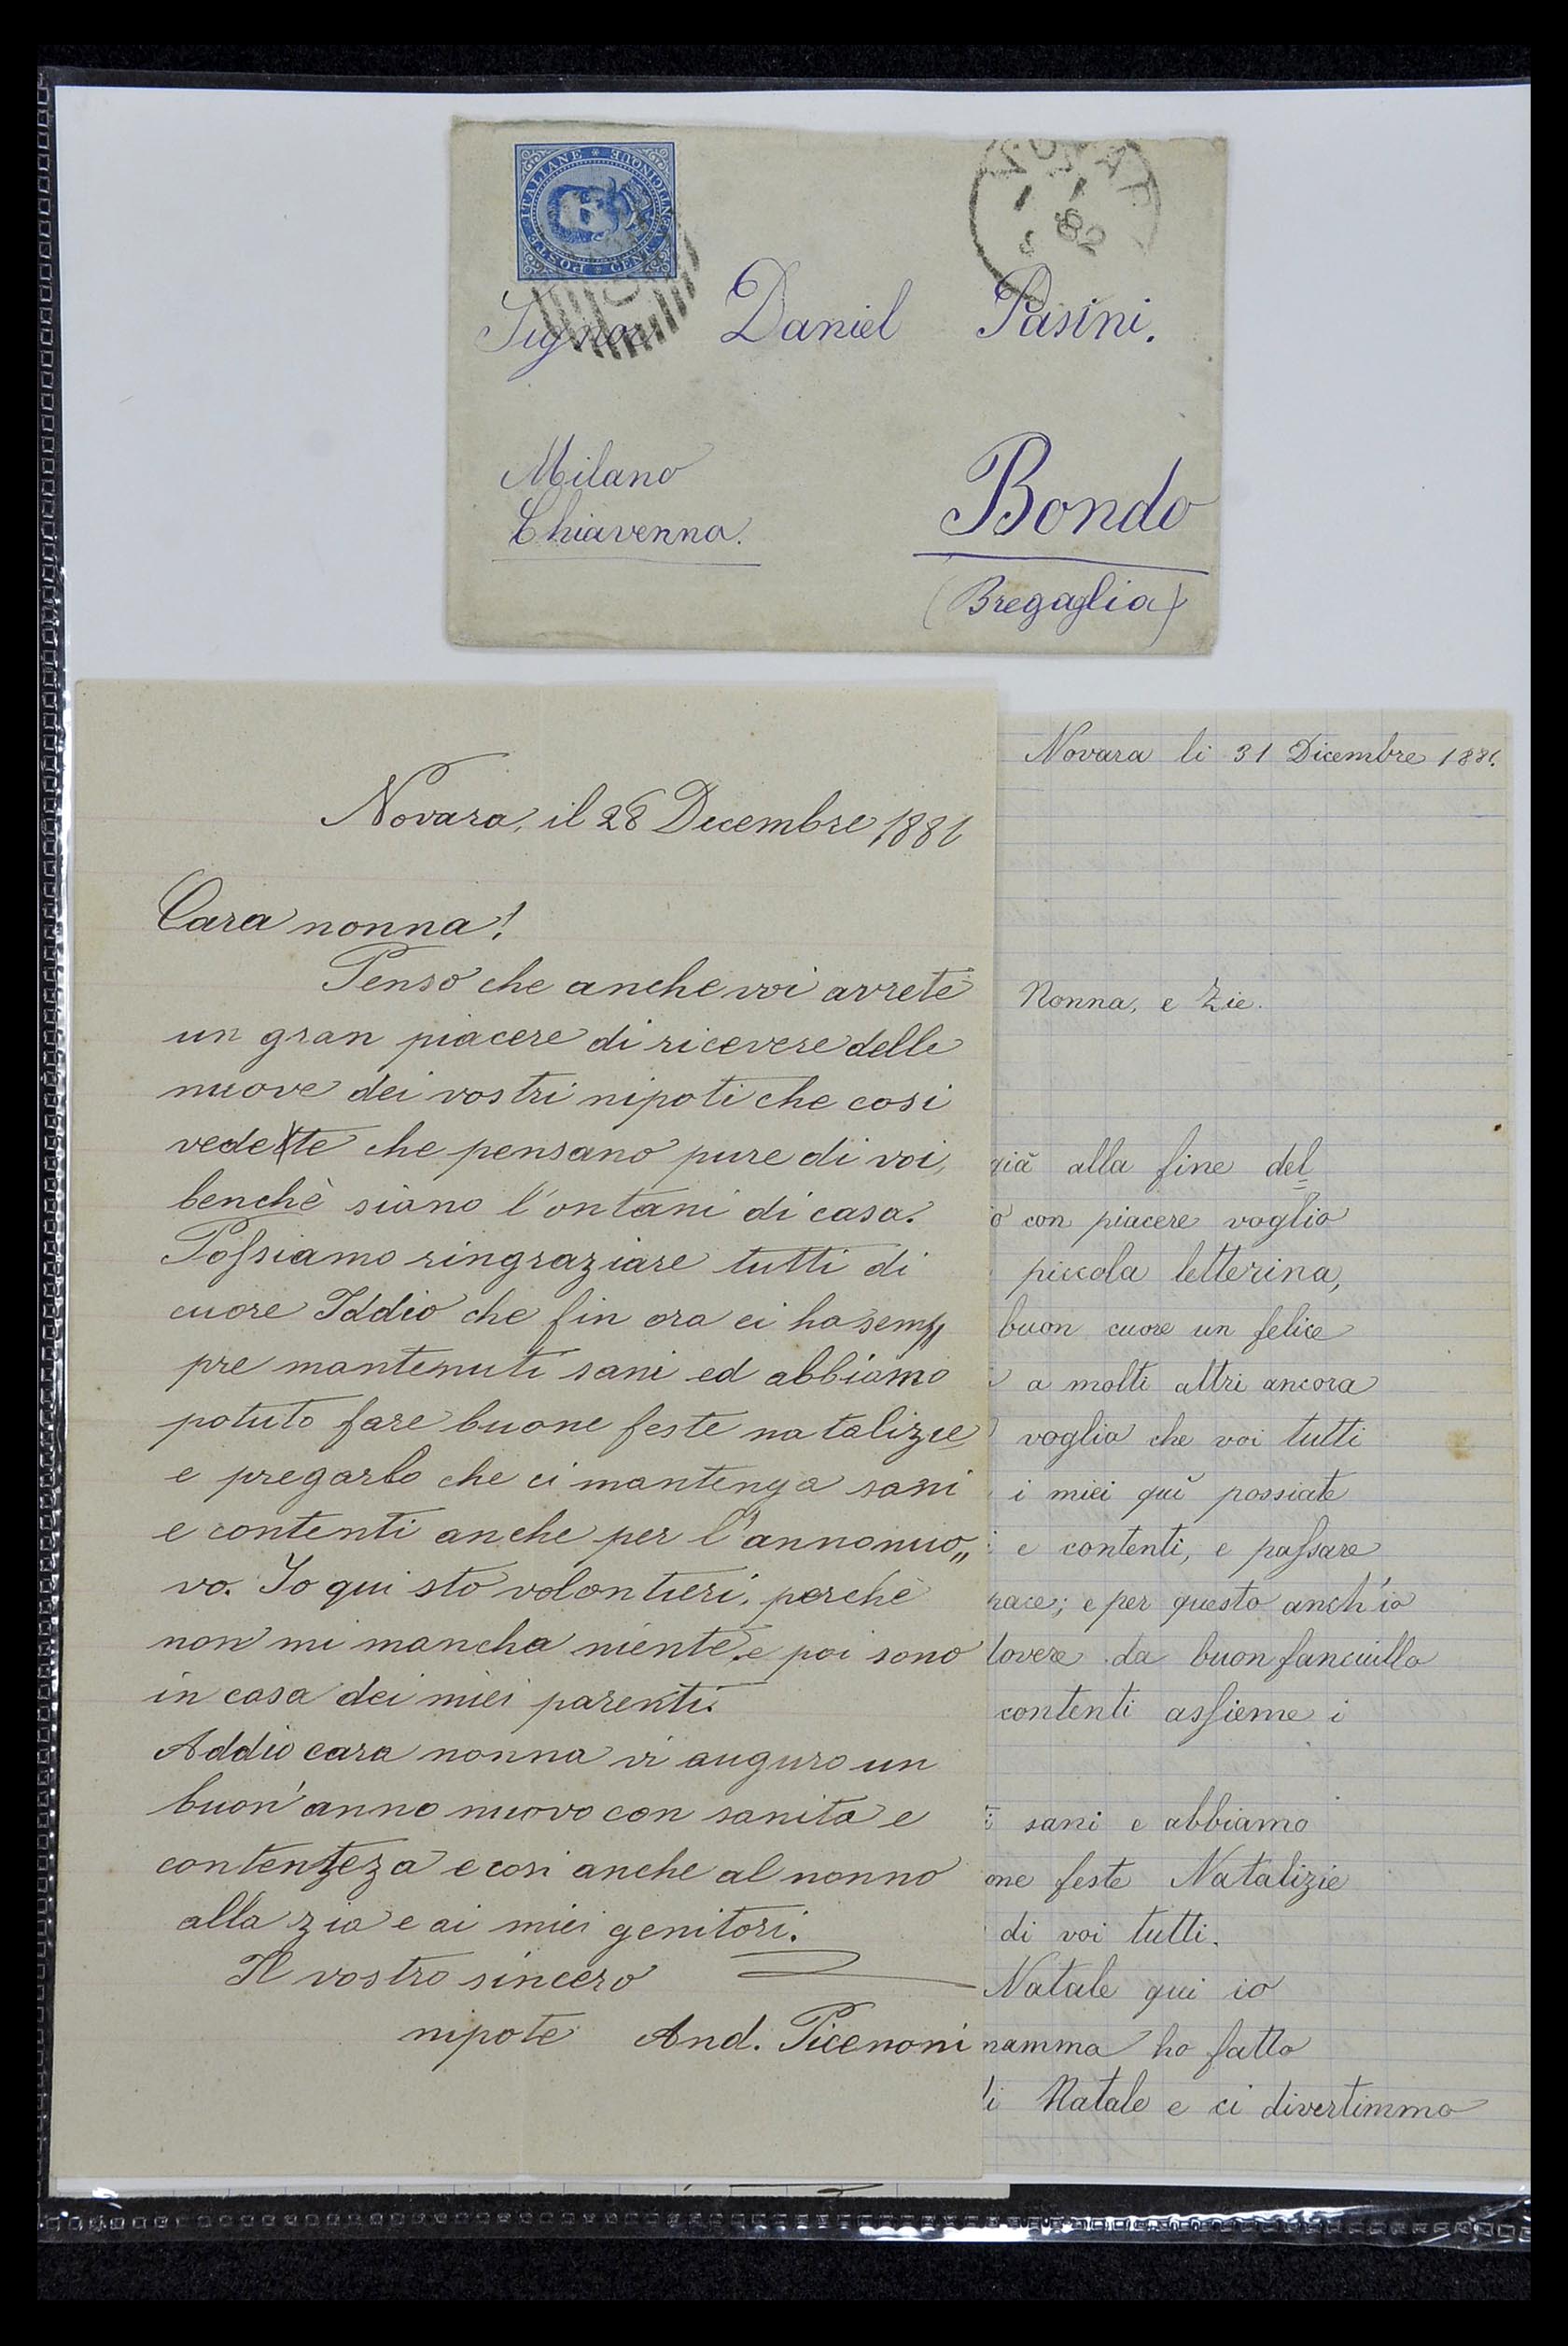 POSTE ITALIANE * CENT. VENTICINQUE *
NOVARA
1 1
82
Signor Daniel Pasini.
Milano
Chiavenna.
Bondo
(Bregaglia)
Novara, il 28 Decembre 1881
Cara nonna!
Penso che anche voi avrete
un gran piacere di ricevere delle
nuove dei vostri nipoti che cosi
vedete che pensano pure di voi,
benchè siano l'ontani di casa.
Possiamo ringraziare tutti di
cuore Iddio che fin ora ci ha sem„
pre mantenuti sani ed abbiamo
potuto fare buone feste natalizie
e pregarlo che ci mantenga sani
e contenti anche per l'anno nuo„
vo. Io qui sto volontieri, perchè
non mi mancha niente, e poi sono
in casa dei miei parenti.
Addio cara nonna vi auguro un
buon' anno nuovo con sanita e
contentezza e cosi anche al nonno
alla zia e ai miei genitori.
Il vostro sincero
nipote And. Picenoni
Novara li 31 Dicembre 1881.
Nonna, e Zie.
già alla fine del
con piacere voglio
piccola letterina,
buon cuore un felice
a molti altri ancora
voglia che voi tutti
i miei quì possiate
e contenti, e passare
pace; e per questo anch'io
dovere da buon fanciullo
contenti assieme i
sani e abbiamo
one feste Natalizie
di voi tutti.
Natale qui io
mamma ho fatto
di Natale e ci divertimmo